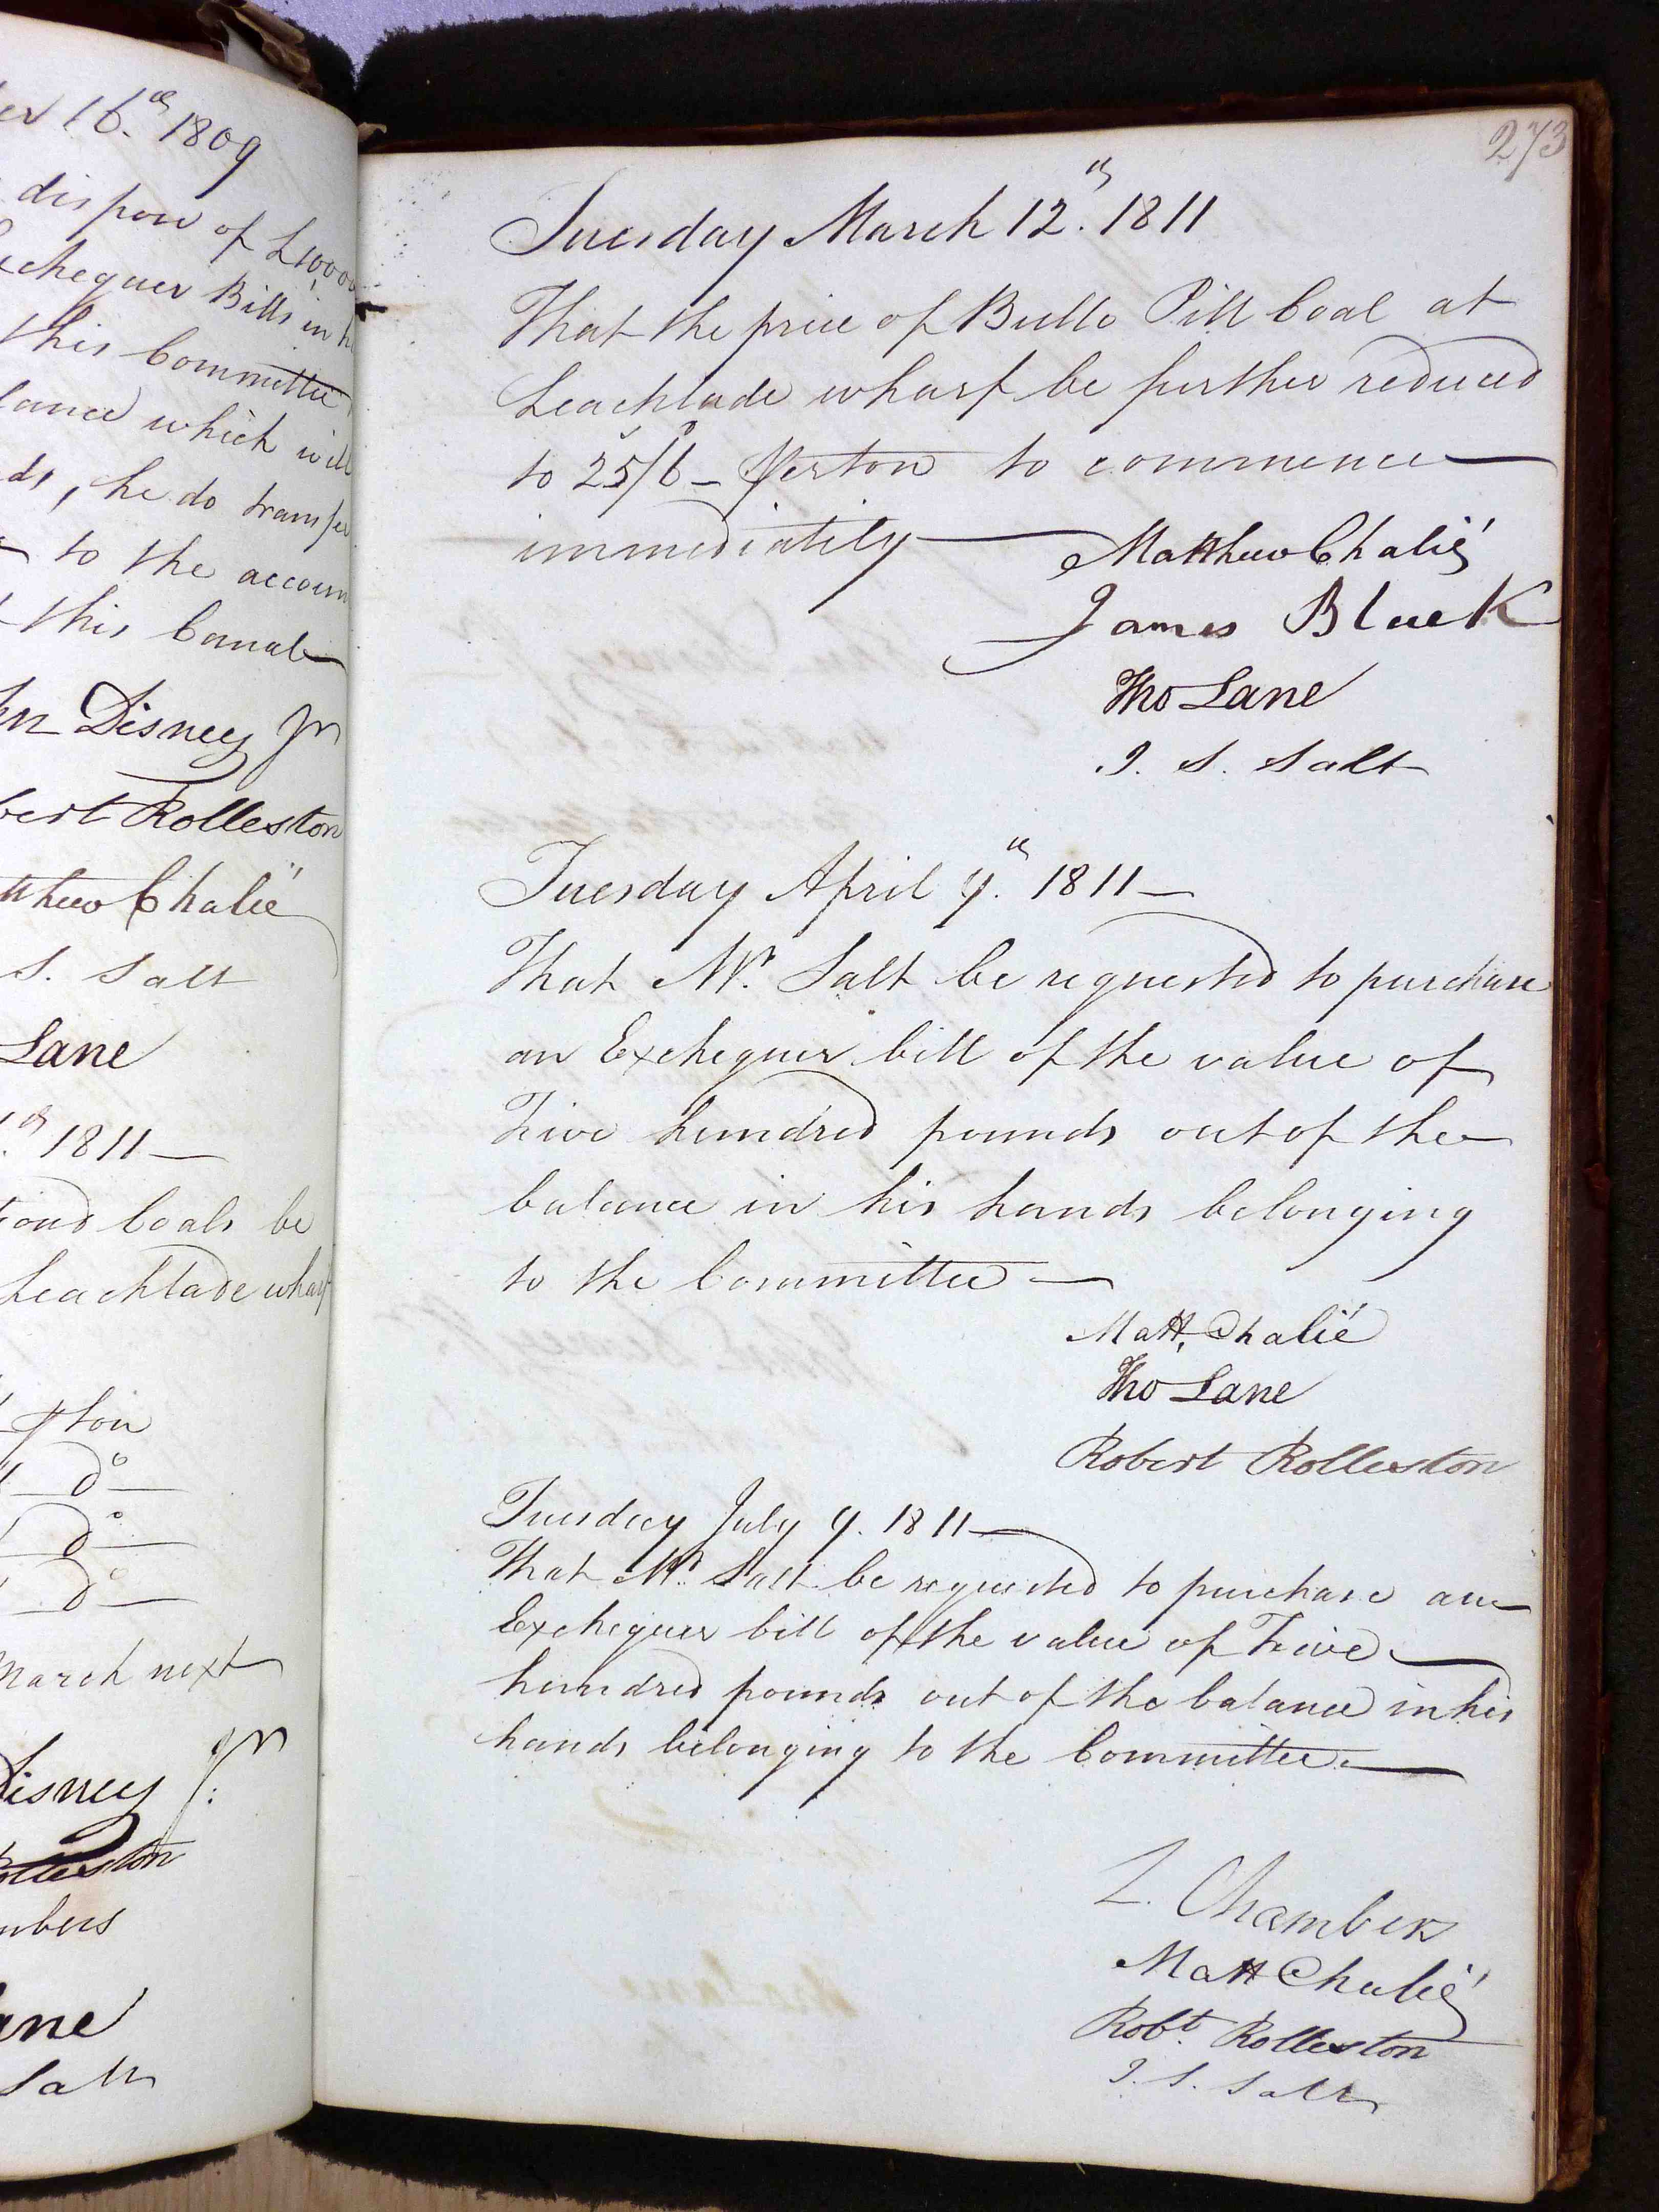 er 16.th 1809
dispose of £1000
xchequer Bills in h
this Committee
lance which will
ds, he do transfer
to the accoun
this Canal
hn Disney Jr
bert Rolleston
tthew Chalié
S. Salt
Lane
th 1811
Coals be
Leachlade wharf
ton
Do
Do
Do
March next
Disney Jr.
Rolleston
mbers
ane
Salt
273
Tuesday March 12.th 1811
That the price of Bullo Pill Coal at
Leachlade wharf be further reduced
to 25s/6d - Perton to commence
immediately
Matthew Chalié
James Black
Tho Lane
J. S. Salt
Tuesday April 9.th 1811
That Mr. Salt be requested to purchase
an Exchequer bill of the value of
Five hundred pounds out of the
balance in his hands belonging
to the Committee
Matt. Chalié
Tho Lane
Robert Rolleston
Tuesday July 9. 1811
That Mr. Salt be requested to purchase an
Exchequer bill of the value of Five
hundred pounds out of the balance in his
hands belonging to the Committee.
L. Chambers
Matt Chalié
Robt. Rolleston
J. S. Salt